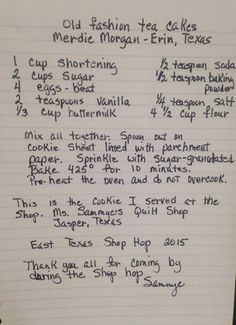 Old fashion tea cakes
Merdie Morgan - Erin, Texas
1 cup Shortening
2 cups Sugar
4 eggs - beat
2 teaspoons Vanilla
1/3 cup buttermilk
1/2 teaspoon Soda
1/2 teaspoon baking
powder
1/4 teaspoon, salt
4 1/2 cup flour
Mix all together. Spoon out on
cookie sheet lined with parchment
paper. Sprinkle with Sugar-granulated
Bake 425° For 10 minutes.
Pre-heat the oven and do not overcook.
This is the cookie I served at the
Shop. Ms. Sammye's Quilt Shop
Jasper, Texas
East Texas Shop Hop 2015
Thank you all for coming by
during the Shop hop
Sammye